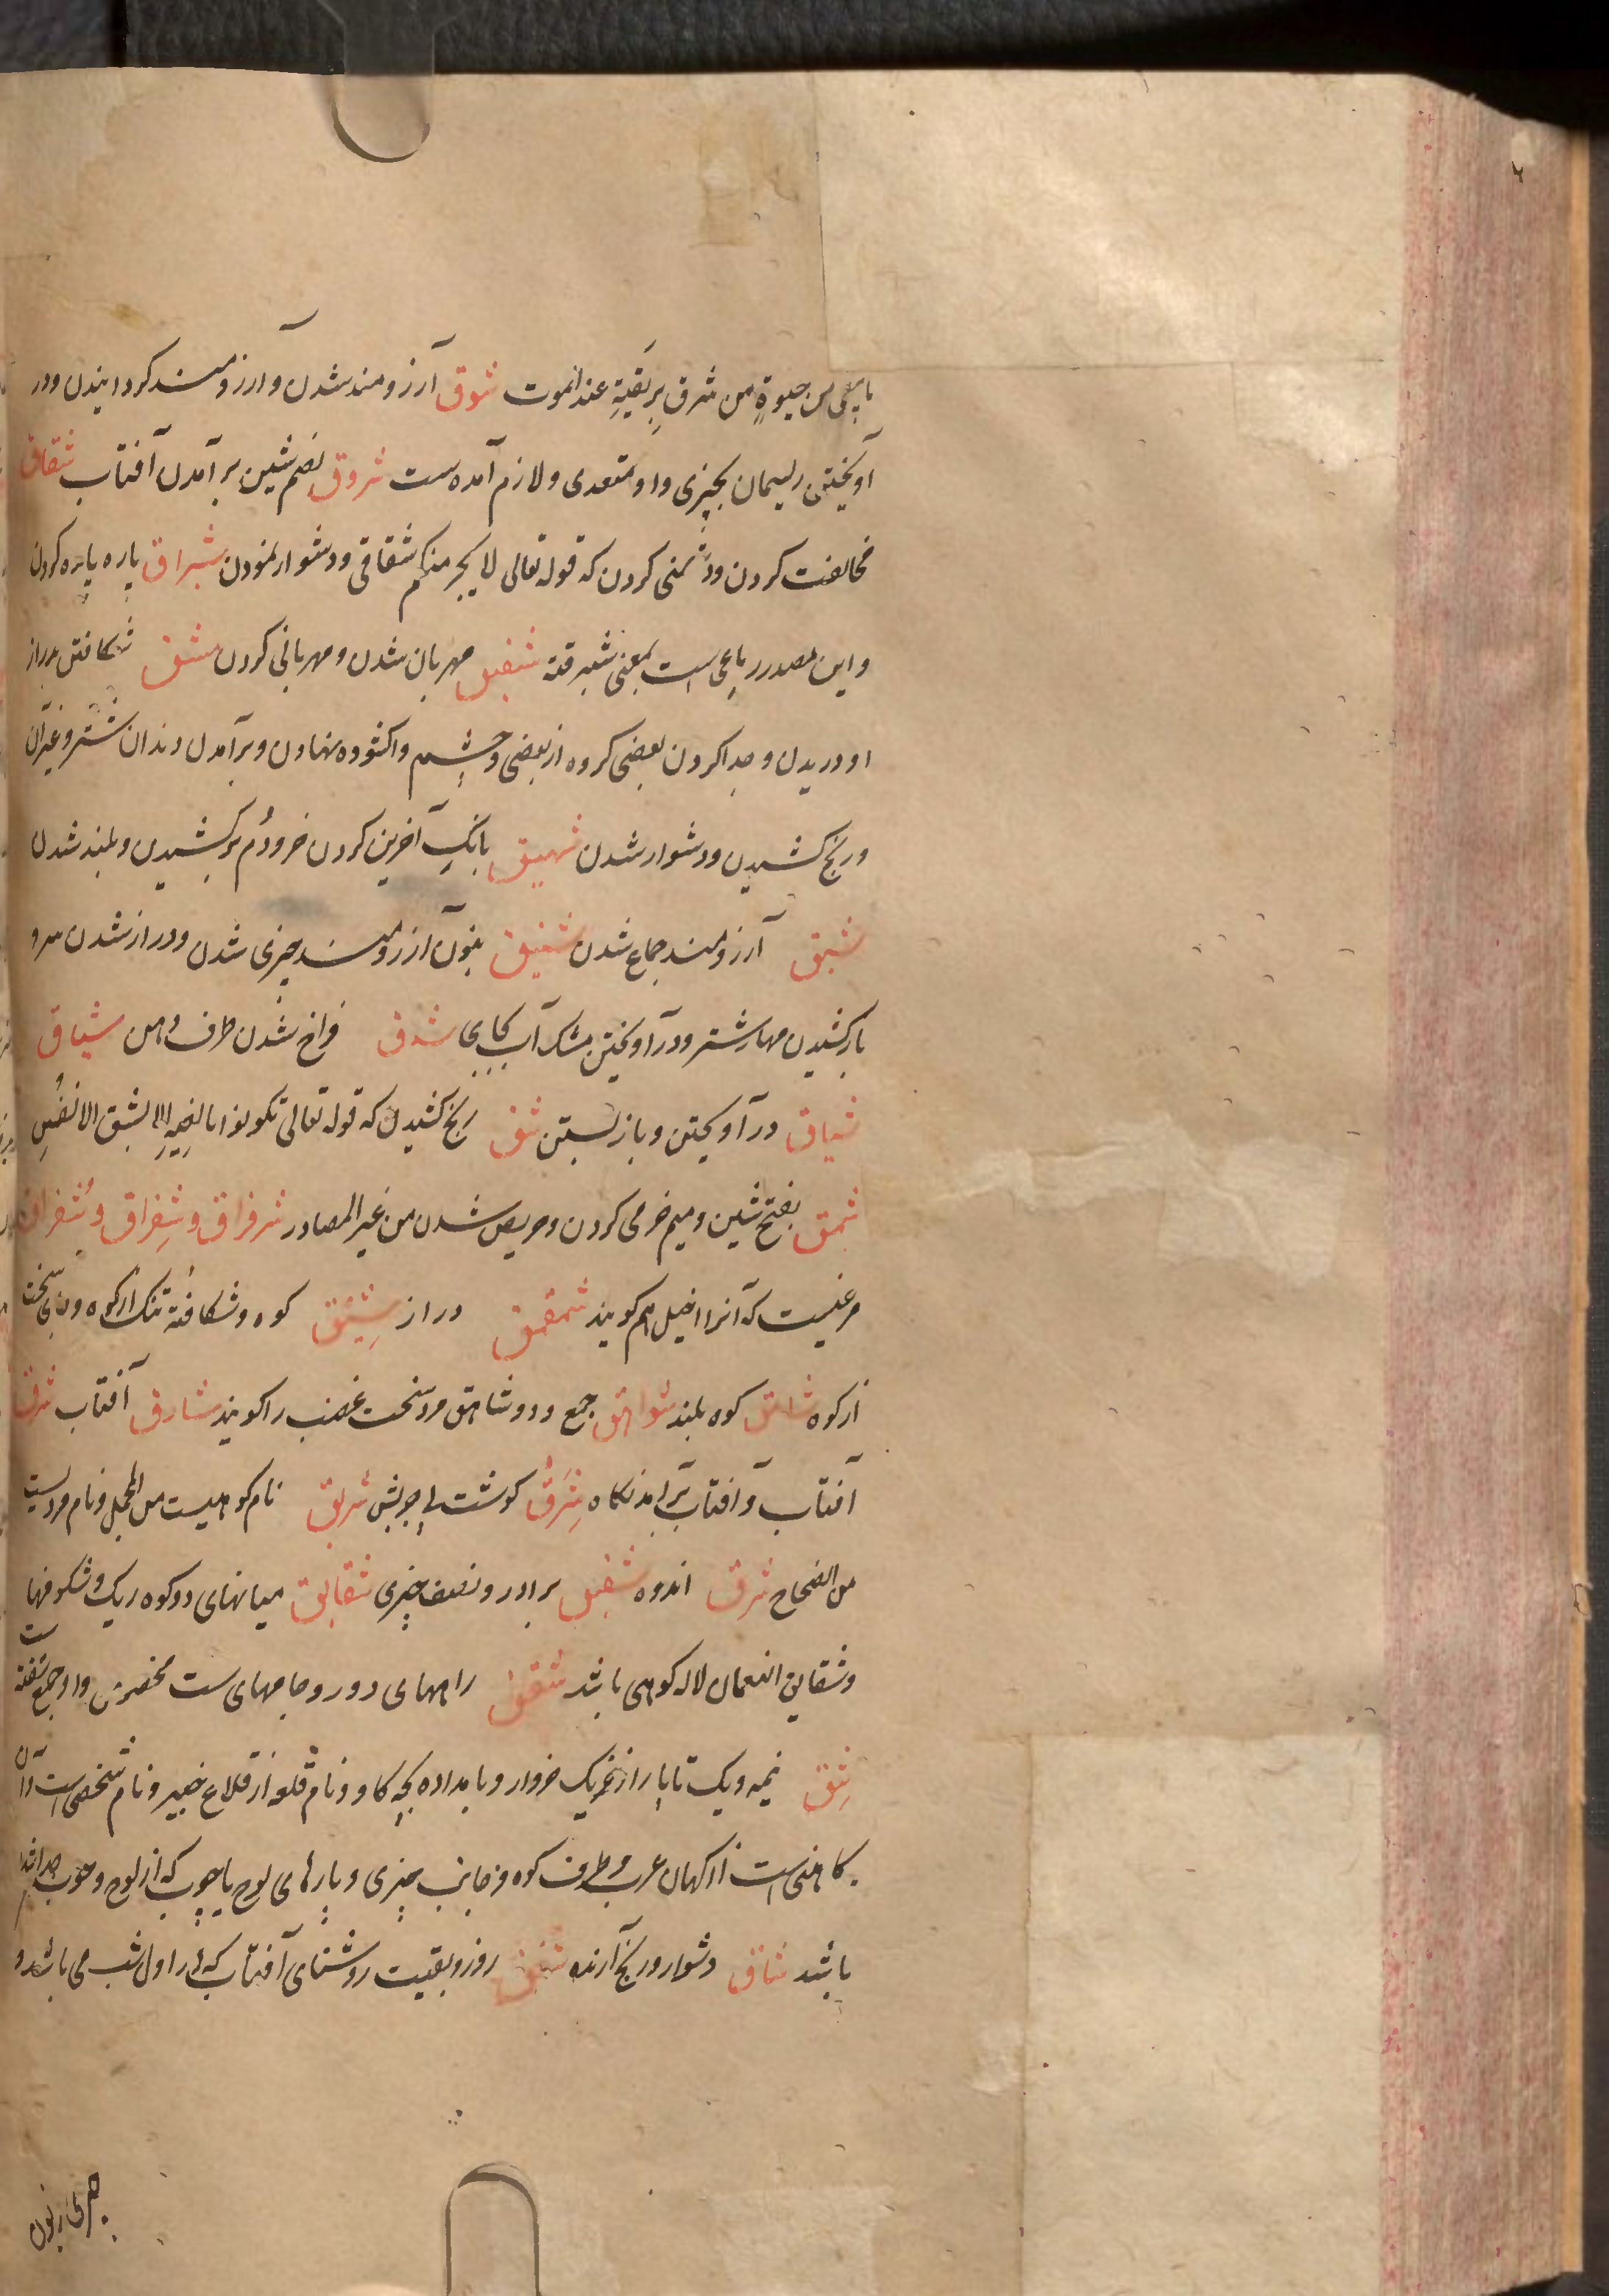 ما بقی من حیوةٍ من شرق بریقیةِ عند الموت شوق آرزومند شدن و آرزومند کردانیدن و در
آویختن ریسمان بچیزی و او متعدی و لازم آمده ست شروق بضم شین برآمدن آفتاب شقاق
مخالفت کردن و دشمنی کردن که قوله تعالی لا یجرمنکم شقاقی و دشوار نمودن شبراق پاره پاره کردن
و این مصدر رباعی است بمعنی شبرقة شفیق مهربان شدن و مهربانی کردن شق شکافتن و راز
او دریدن و جدا کردن بعضی کروه از بعضی و چشم واکشوده نهادن و برآمدن دندان شتر و غیر آن
و رنج کشیدن و دشوار شدن شهیق بانک آخرین کردن خر و دم برکشیدن و بلند شدن
شبق آرزومند جماع شدن شنیق بنون آرزومند چیزی شدن و دراز شدن سر و
باز کشیدن مهار شتر و درآویختن مشک آب بجایی شدق فراخ شدن طرف دهن شیاق
شیاق درآویختن و باز بستن شق رنج کشیدن که قوله تعالی تکونوا بالغیه الا بشق الانفس
شمق بفتح شین و میم خرمی کردن و حریص شدن من غیر المصادر شرقراق و شقراق و شقراق
مرغیست که آنرا اخیل هم کویند شمقمق دراز شیق کوه و شکافته تنک از کوه و جای سخت
از کوه شاهق کوه بلند شواهق جمع و دو شاهق مرد سخت غضب را کویند شارق آفتاب شرق
آفتاب و آفتاب برآمدنکاه شرق کوشت بی چربش شریق نام کوهیست من المجمل و نام مردیست
من الصحاح شرق اندوه شقیق برادر و نصف چیزی شقایق میانهای دو کوه ریک و شکوفها
و شقایق النعمان لاله کوهی باشد شقق راههای دور و جامهای ست مخصوص و او جمع شقه ست
شق نیمه و یک تا بار از خر یک خروار و بامداده بچه کاو و نام قلعه از قلاع خیبر و نام شخصی است و آن
کاهنی است از کهان عرب و طرف کوه و جانب چیزی و پارهای لوح یا چوب که از لوح و چوب جدا شده
باشد شاق دشوار و رنج آرنده شفق روز و بقیت روشنای آفتاب که در اول شب می باشد و